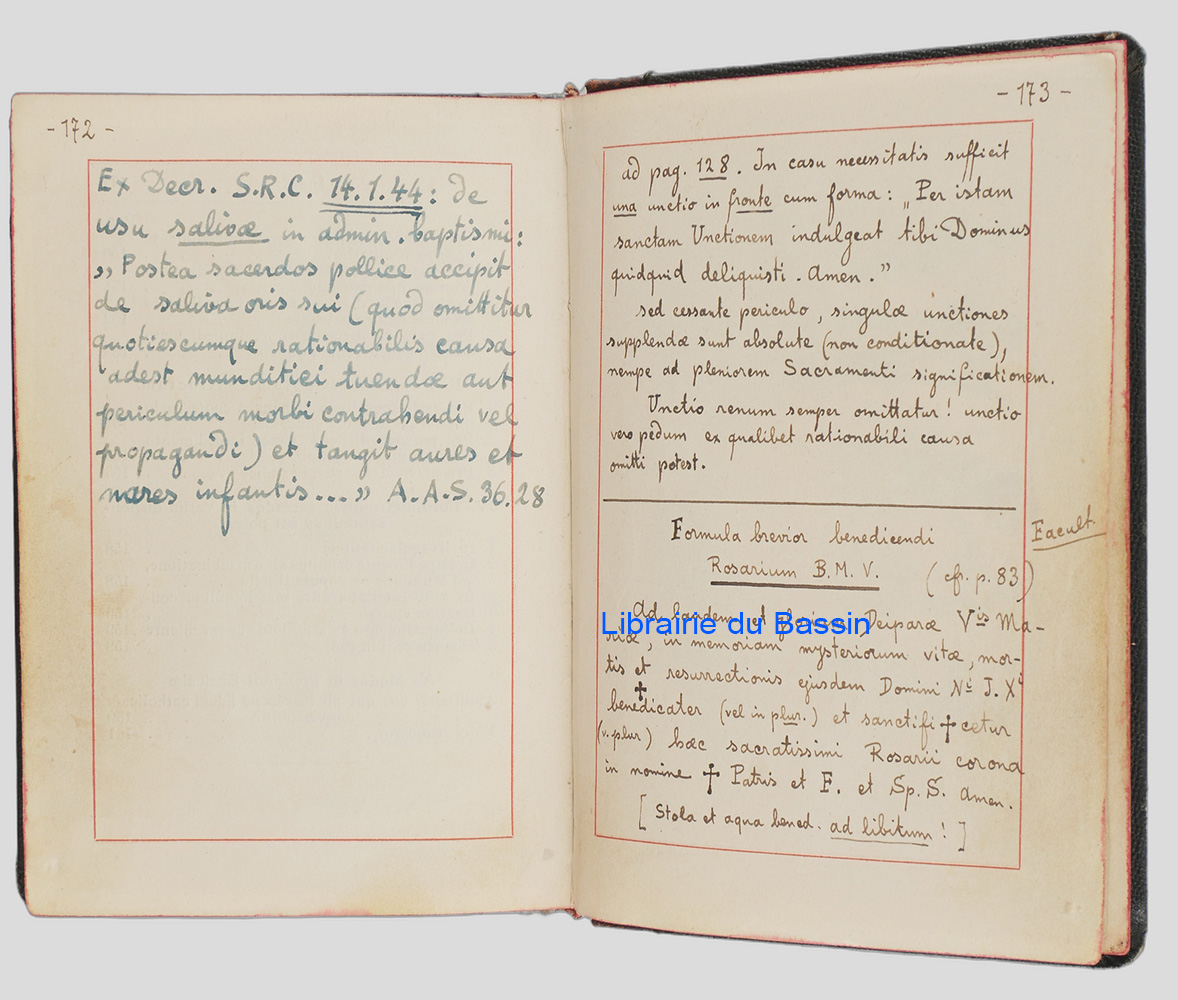 - 172 -
Ex Decr. S.R.C. 14.1.44: De
usu salivæ in admin. baptismi:
„ Postea sacerdos pollice accipit
de saliva oris sui (quod omittitur
quotiescumque rationabilis causa
adest munditiei tuendæ aut
periculum morbi contrahendi vel
propagandi) et tangit aures et
nares infantis...» A.A.S. 36.28
- 173 -
ad pag. 128. In casu necessitatis sufficit
una unctio in fronte cum forma: „Per istam
sanctam Unctionem indulgeat tibi Dominus
quidquid deliquisti. Amen.”
sed cessante periculo, singulæ unctiones
supplendæ sunt absolute (non conditionate),
nempe ad pleniorem Sacramenti significationem.
Unctio renum semper omittatur! unctio
vero pedum ex qualibet rationabili causa
omitti potest.
Formula brevior benedicendi
Facult.
Rosarium B.M.V. (cfr. p. 83)
Ad laudem et gloriam Deiparæ Vis Ma-
Librairie du Bassin
riæ, in memoriam mysteriorum vitæ, mor-
tis et resurrectionis ejusdem Domini Ni J. Xi
bene†dicater (vel in plur.) et sanctifi†cetur
(v. plur) hæc sacratissimi Rosarii corona
in nomine † Patris et F. et Sp. S. Amen.
[ Stola et aqua bened. ad libitum! ]